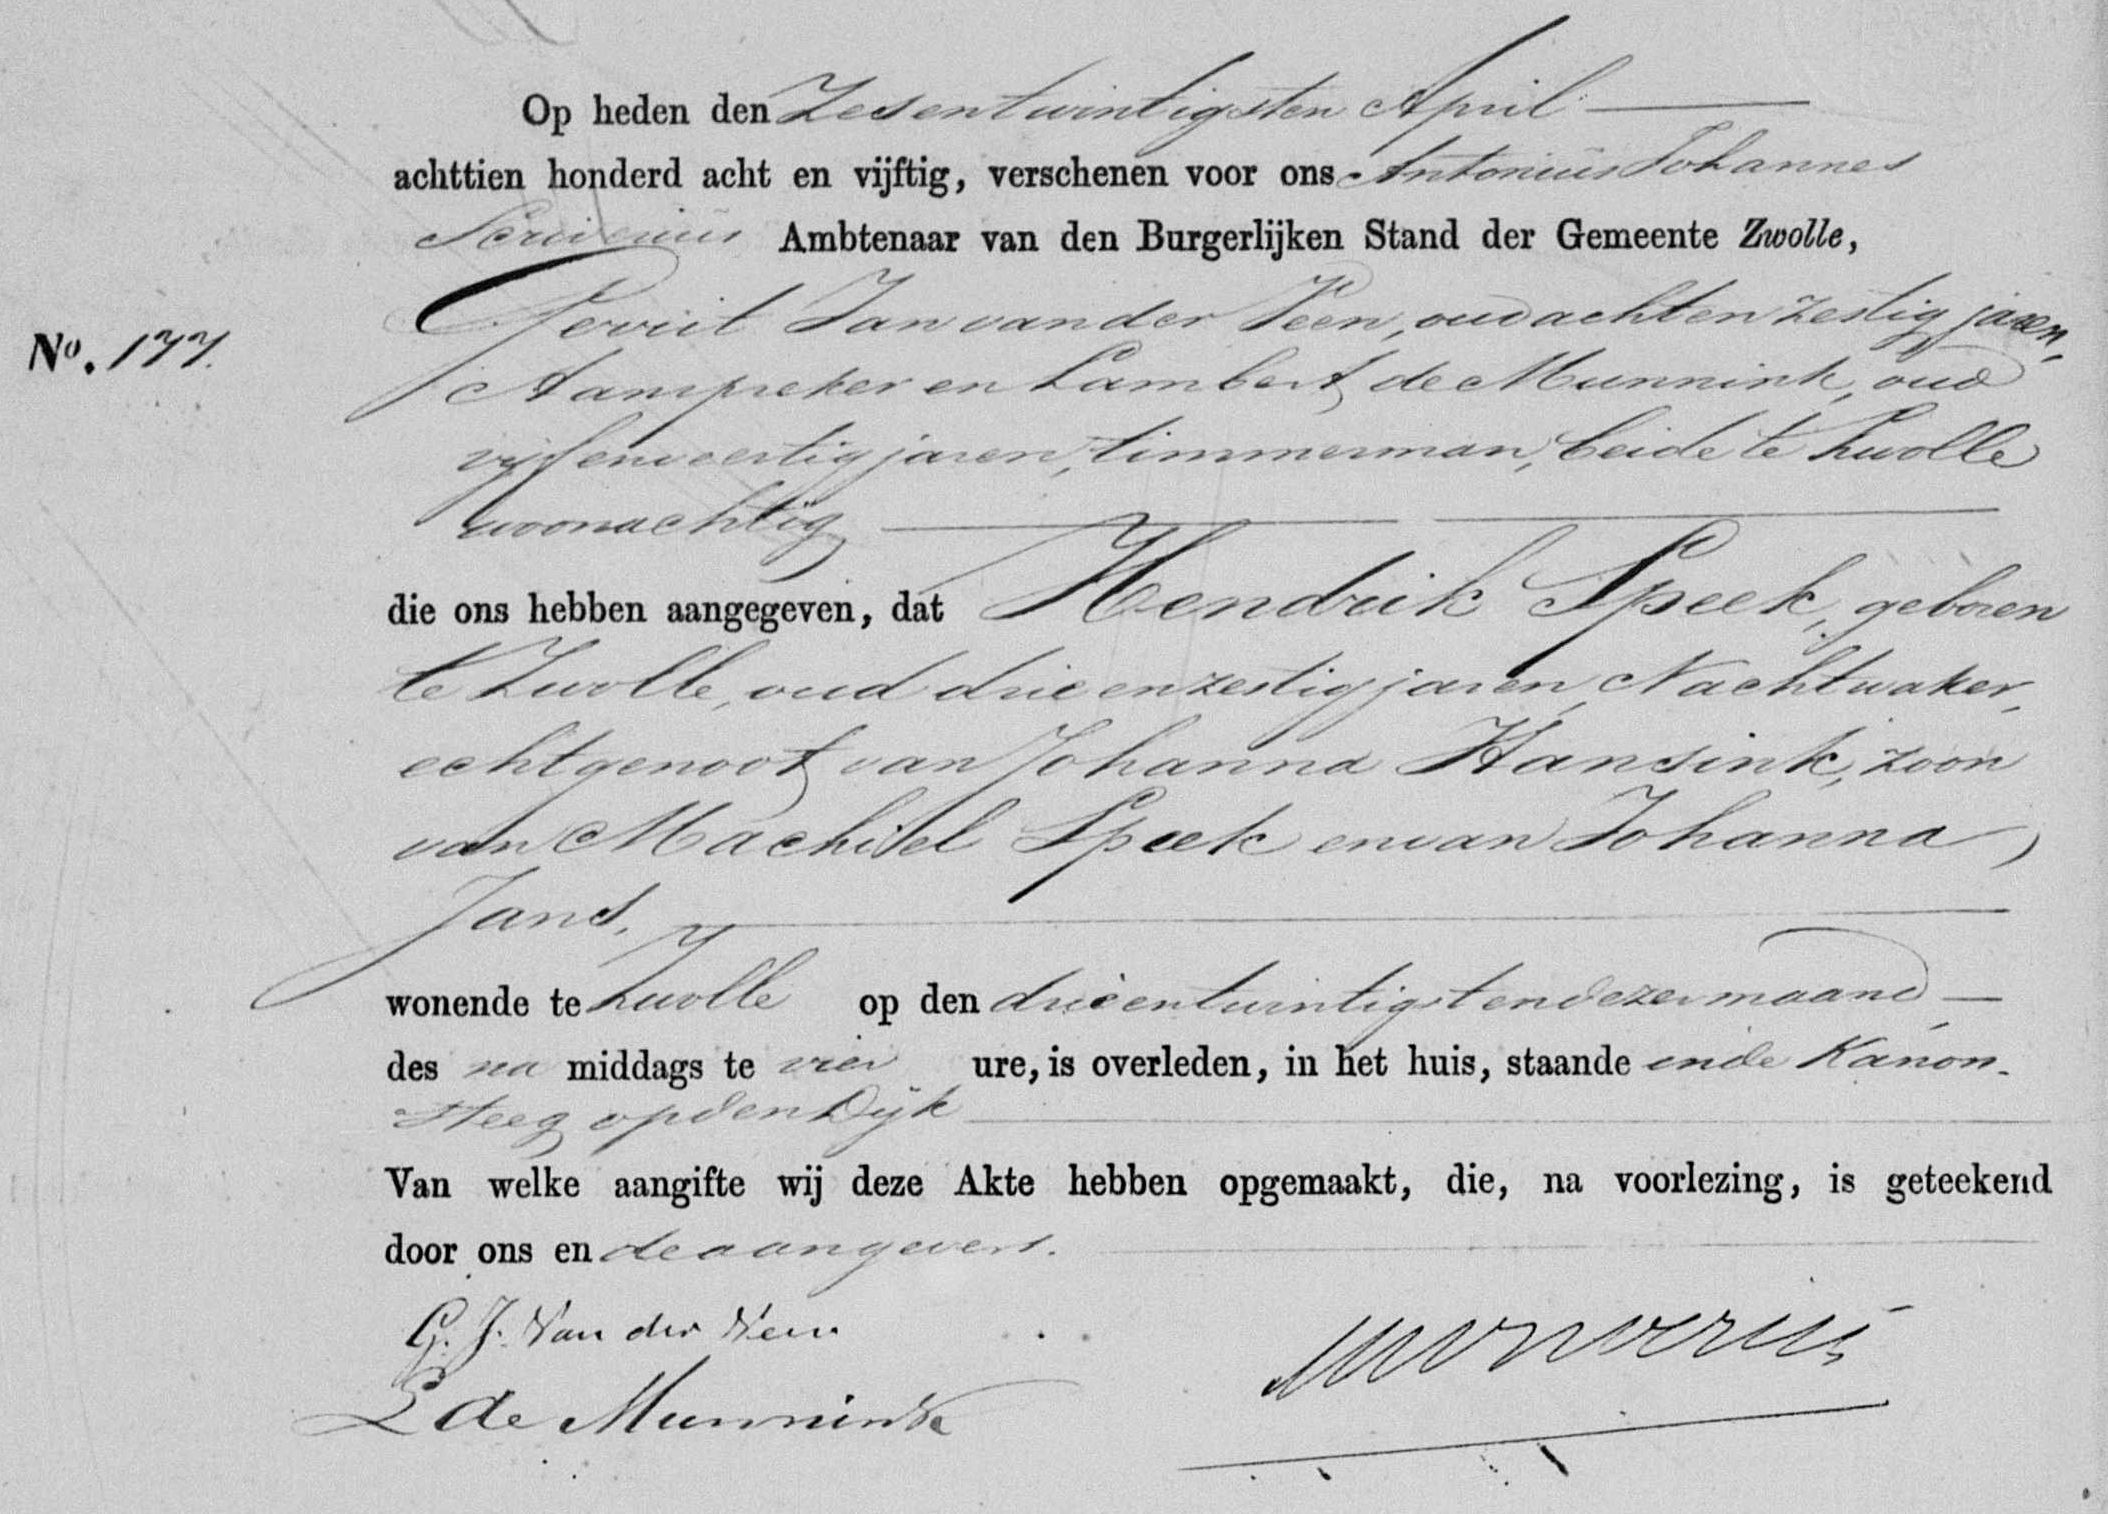 Op heden den Zesentwintigsten April
achttien honderd acht en vijftig, verschenen voor ons Antonius Johannes
Ambtenaar van den Burgerlijken Stand der Gemeente Zwolle,
Gerrit Jan van der Veen, oud achtenzestig jaren,
No. 177.
Aanspreker en Lambert de Munnink, oud
vijfenveertig jaren, timmerman, beide te Zwolle
woonachtig
die ons hebben aangegeven, dat Hendrik Speek, geboren
te Zwolle, oud drieenzestig jaren, Nachtwaker,
echtgenoot van Johanna Hansink, zoon
van Machiel Speek en van Johanna
Jans,
wonende te Zwolle op den drieentwintigsten dezer maand
des na middags te vier ure, is overleden, in het huis, staande in de Kanon-
steeg op den Dijk
Van welke aangifte wij deze Akte hebben opgemaakt, die, na voorlezing, is geteekend
door ons en de aangevers.
G. J. Van der Veen
L de Munnink